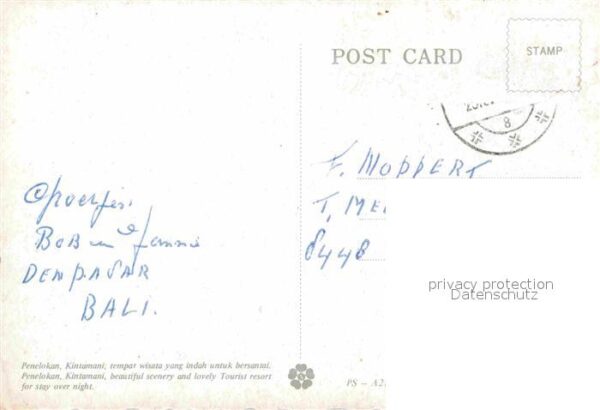 POST CARD
STAMP
8
F. MOPPERT
T. ME
6448
Groetjes
BOB en Jannie
DENPASAR
BALI.
privacy protection
Datenschutz
Penelokan, Kintamani, tempat wisata yang indah untuk bersantai.
Penelokan, Kintamani, beautiful scenery and lovely Tourist resort
for stay over night.
PS – A2